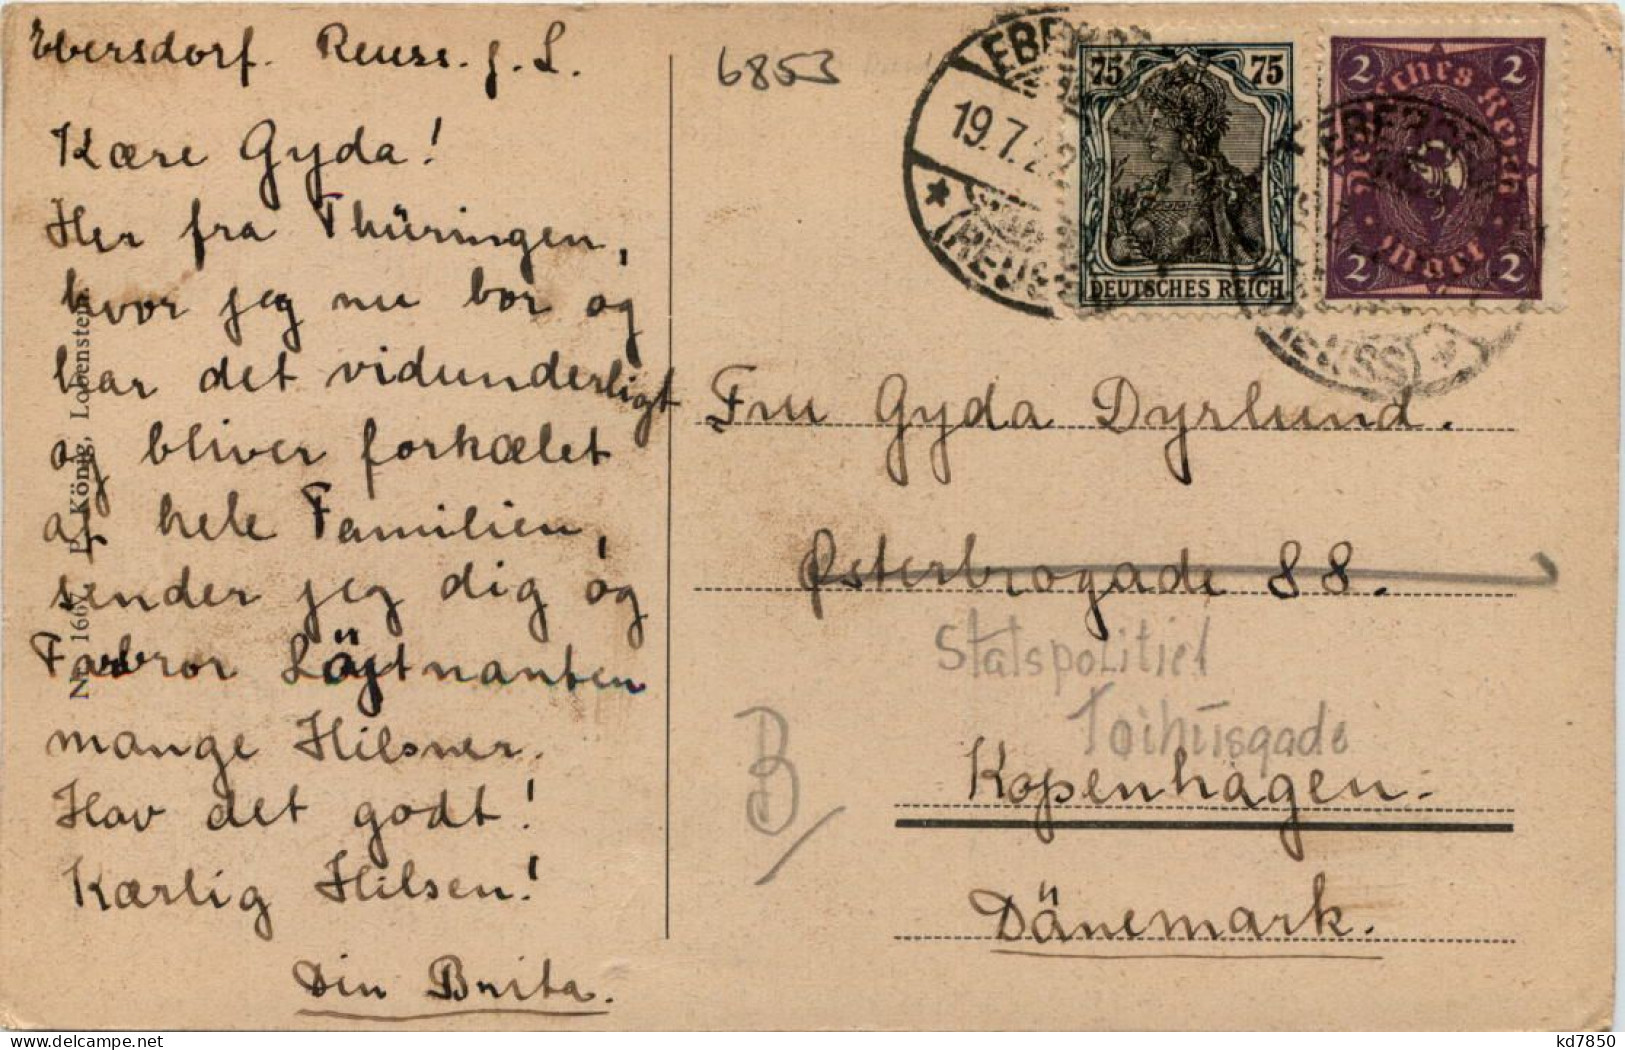 Ebersdorf. Reuss. j. L.
Kære Gyda!
Her fra Thüringen,
hvor jeg nu bor og
har det vidunderligt
og bliver forkælet
af hele Familien,
sender jeg dig og
Farbror Löjtnanten
mange Hilsner.
Hav det godt!
Kærlig Hilsen!
Din Brita.
König, Lobenstein.
6853
EBERSDO
19.7.22
REUSS
75 75
DEUTSCHES REICH
2 2
Deutsches Reich
2 Mark 2
EBERSD
REUSS
Fru Gyda Dyrlund.
Østerbrogade 88.
Statspolitiet
Kopenhagen.
Dänemark.
B/
kd7850